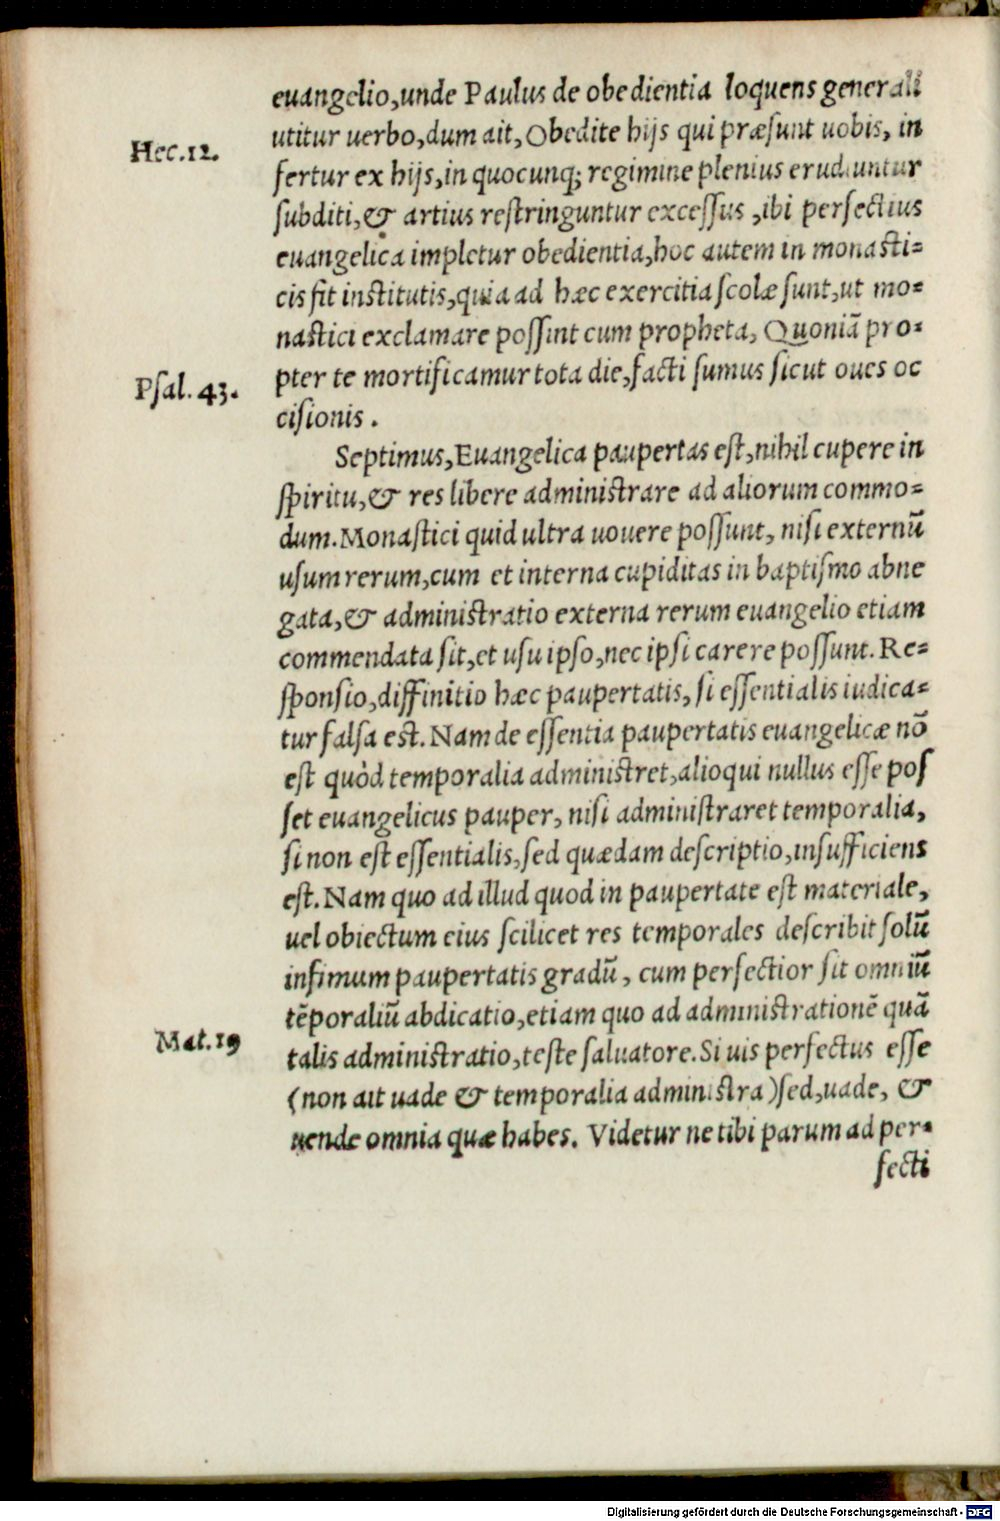 euangelio,unde Paulus de obedientia loquens generali
utitur uerbo,dum ait, Obedite hijs qui præsunt uobis, in
Hec.12.
fertur ex hijs,in quocunq; regimine plenius erudiuntur
subditi,& artius restringuntur excessus ,ibi perfectius
euangelica impletur obedientia,hoc autem in monasti=
cis fit institutis,quia ad hæc exercitia scolæ sunt,ut mo=
nastici exclamare possint cum propheta, Quoniã pro=
Psal. 43.
pter te mortificamur tota die,facti sumus sicut oues oc
cisionis .
Septimus,Euangelica paupertas est,nihil cupere in
spiritu,& res libere administrare ad aliorum commo=
dum.Monastici quid ultra uouere possunt, nisi externũ
usum rerum,cum et interna cupiditas in baptismo abne
gata,& administratio externa rerum euangelio etiam
commendata sit,et usu ipso,nec ipsi carere possunt. Re=
sponsio,diffinitio hæc paupertatis, si essentialis iudica=
tur falsa est. Nam de essentia paupertatis euangelicæ nõ
est quòd temporalia administret,alioqui nullus esse pos
set euangelicus pauper, nisi administraret temporalia,
si non est essentialis,sed quædam descriptio,insufficiens
est. Nam quo ad illud quod in paupertate est materiale,
uel obiectum eius scilicet res temporales describit solũ
infimum paupertatis gradũ, cum perfectior sit omniũ
tẽporaliũ abdicatio,etiam quo ad administrationẽ quã
Mat.19
talis administratio,teste saluatore.Si uis perfectus esse
(non ait uade & temporalia administra)sed,uade, &
uende omnia quæ habes. Videtur ne tibi parum ad per=
fecti
Digitalisierung gefördert durch die Deutsche Forschungsgemeinschaft - DFG